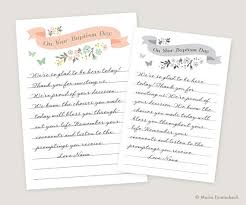 On Your Baptism Day
We're so glad to be here today!
Thank you for inviting us. We are
proud of your decision. We
know the choice you made
today will bless you through-
out your life. Remember your
covenants and listen to the
promptings you receive.
Love Nana
On Your Baptism Day
We're so glad to be here today!
Thank you for inviting us. We are
proud of your decision. We
know the choice you made
today will bless you through-
out your life. Remember your
covenants and listen to the
promptings you receive.
Love Nana